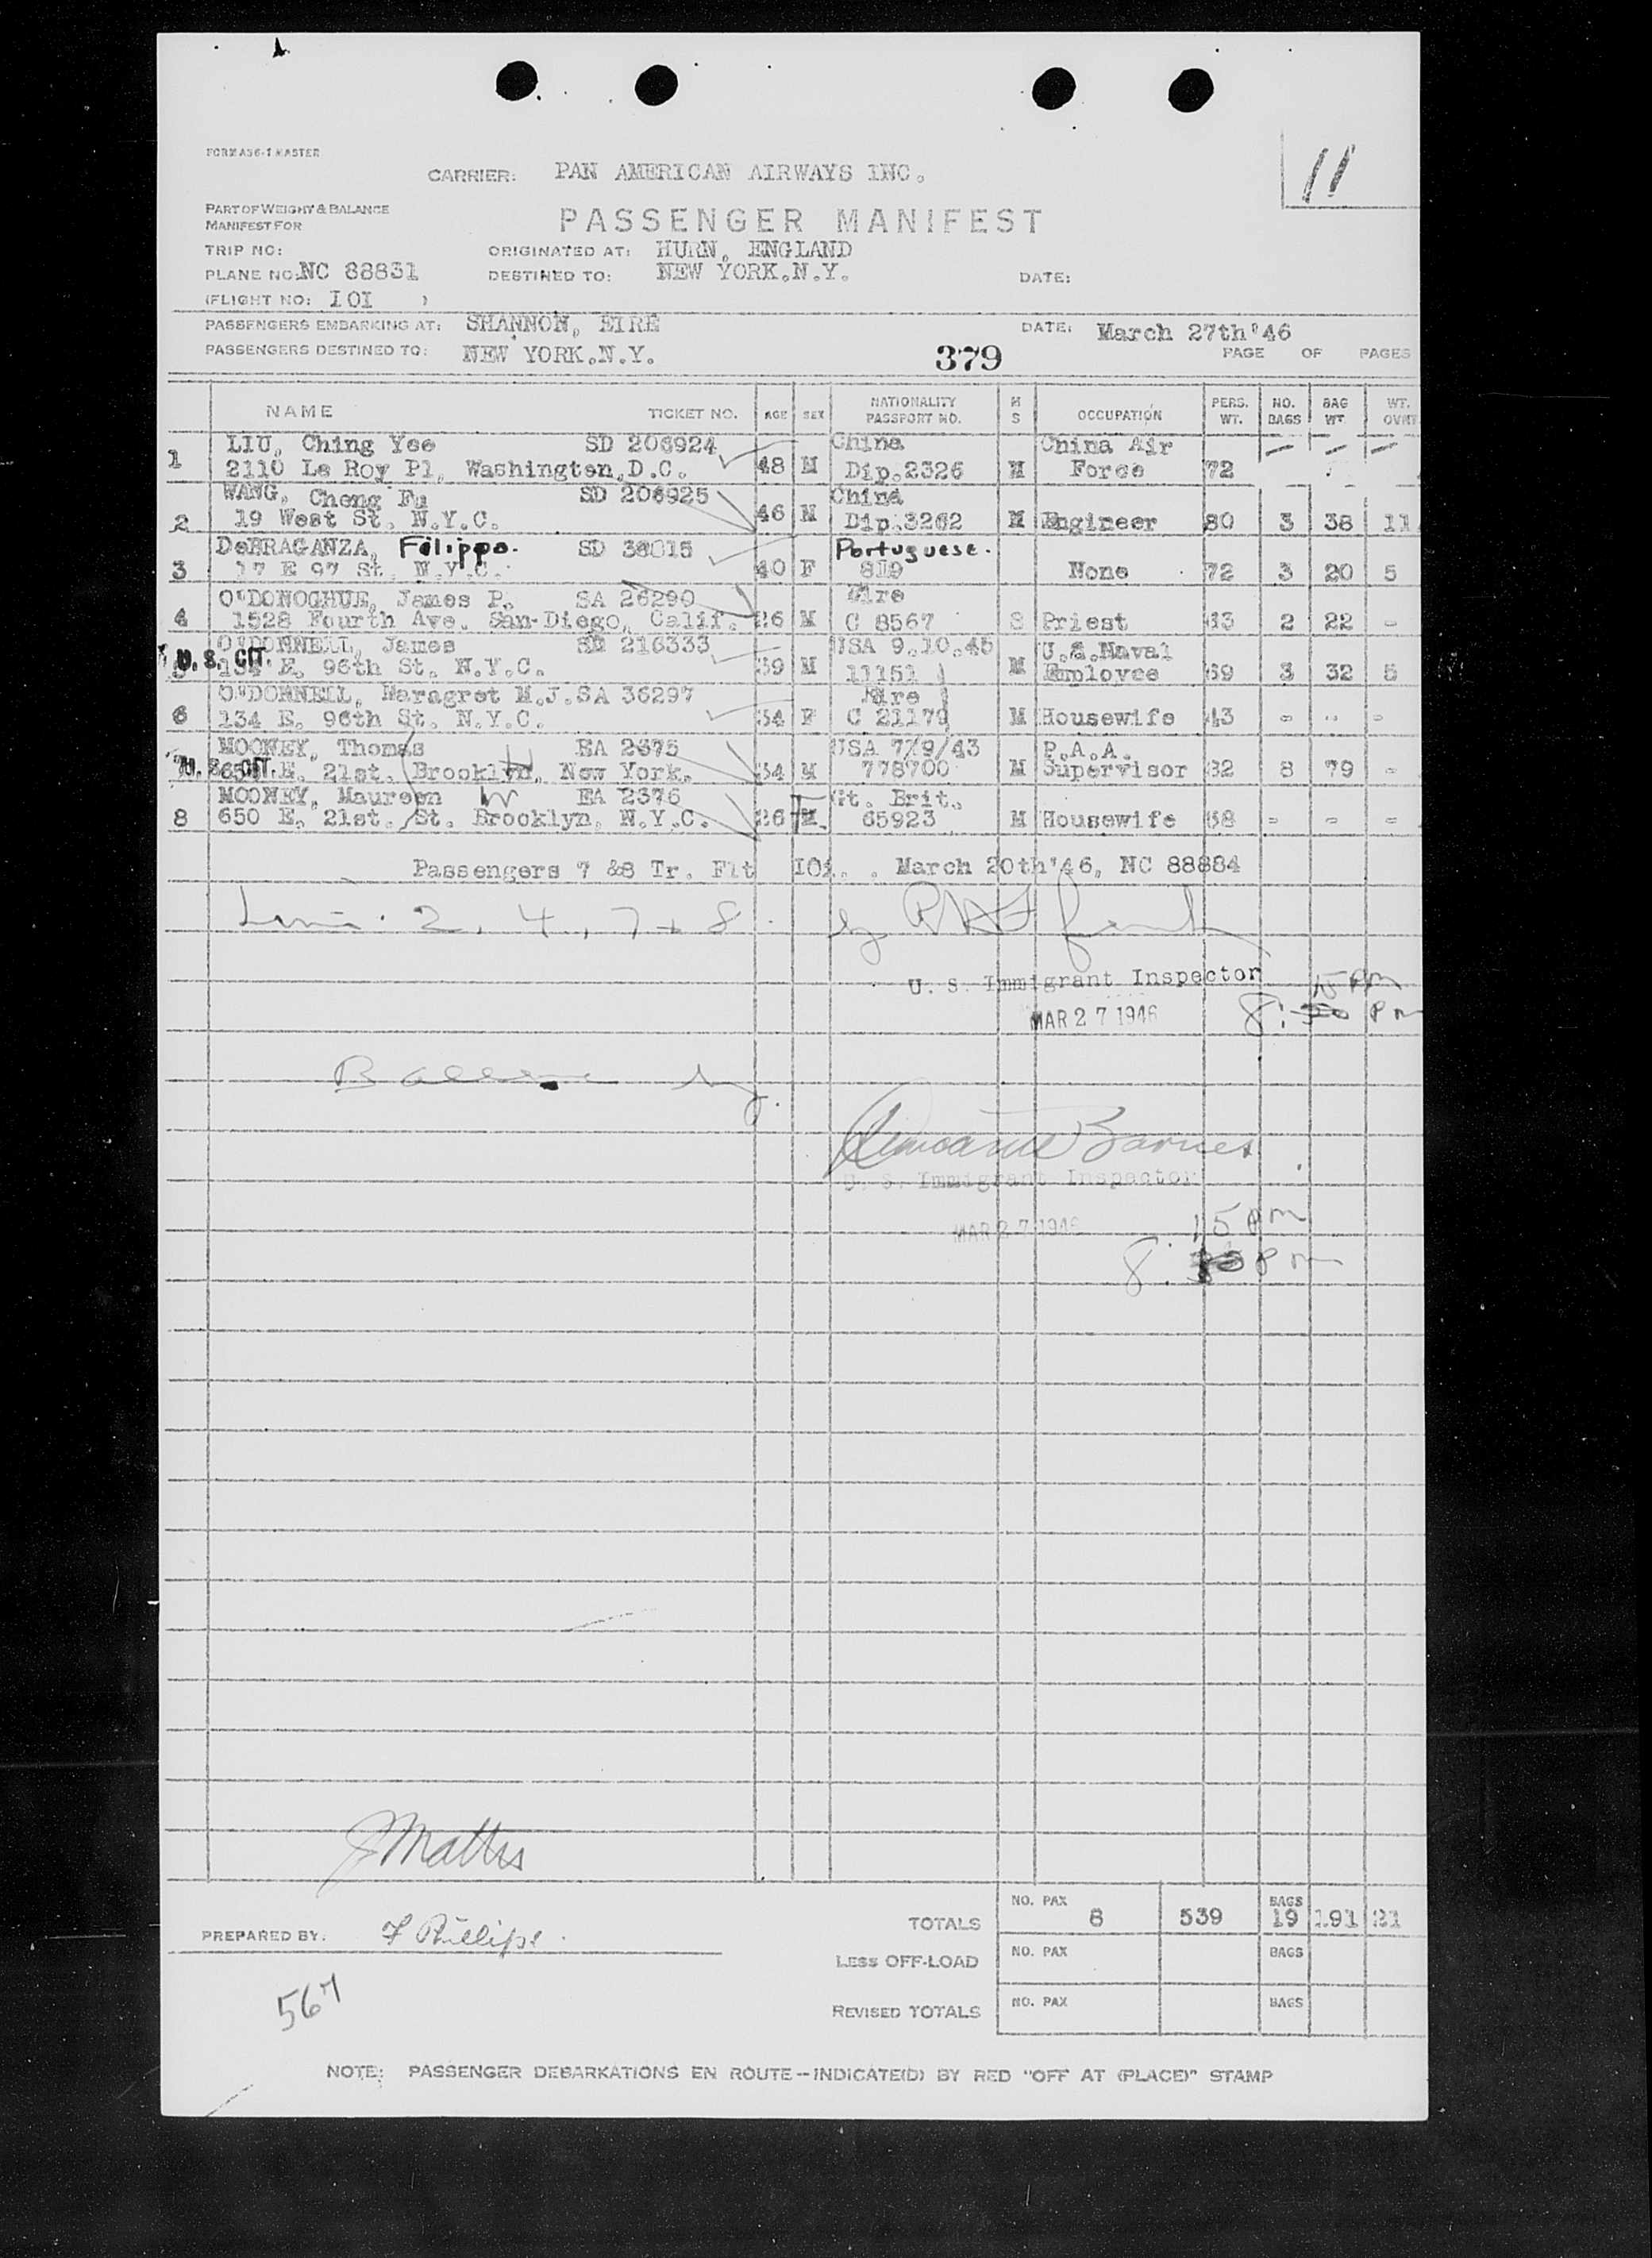 11
FORM A36-1 MASTER
CARRIER: PAN AMERICAN AIRWAYS INC.
PART OF WEIGHT & BALANCE
MANIFEST FOR
PASSENGER MANIFEST
TRIP NO: ORIGINATED AT: HURN, ENGLAND
PLANE NO: NC 88831 DESTINED TO: NEW YORK.N.Y. DATE:
(FLIGHT NO: IOI )
PASSENGERS EMBARKING AT: SHANNON, EIRE DATE: March 27th'46
PASSENGERS DESTINED TO: NEW YORK.N.Y. 379 PAGE OF PAGES
NAME TICKET NO. AGE SEX NATIONALITY PASSPORT NO. M S OCCUPATION PERS. WT. NO. BAGS BAG WT. WT. OVWT
LIU, Ching Yee SD 206924 China China Air
1 2110 Le Roy Pl, Washington,D.C. 48 M Dip.2326 M Force 72
WANG, Cheng Fu SD 206925 China
2 19 West St. N.Y.C. 46 M Dip.3262 M Engineer 80 3 38 11
DeBRAGANZA, Filippa. SD 36015 Portuguese.
3 17 E 97 St. N.Y.C. 40 F 819 None 72 3 20 5
O'DONOGHUE, James P. SA 26290 Eire
4 1528 Fourth Ave. San-Diego, Calif. 26 M C 8567 S Priest 63 2 22 -
O'DONNELL, James SD 216333 USA 9.10.45 U.S.Naval
U. S. CIT.
5 134 E. 96th St. N.Y.C. 39 M 11151 M Employee 69 3 32 5
O'DONNELL, Maragret M.J.SA 36297 Eire
6 134 E. 96th St. N.Y.C. 34 F C 21179 M Housewife 43 - - -
MOONEY, Thomas EA 2675 USA 7/9/43 P.A.A.
U. S. CIT.
7 650 E. 21st. Brooklyn, New York. 34 M 778700 M Supervisor 82 8 79 -
MOONEY, Maureen EA 2376 Gt. Brit.
8 650 E. 21st. St. Brooklyn, N.Y.C. 26 F M. 65923 M Housewife 58 - - -
Passengers 7 &8 Tr. Flt IOI. . March 20th'46, NC 88884
2, 4, 7 + 8 by
U. S. Immigrant Inspector
MAR 27 1946 8:
15 PM
by
Barnes
U. S. Immigrant Inspector
MAR 27 1946
15 PM
8:
J Mattes
TOTALS NO. PAX 8 539 BAGS 19 191 21
PREPARED BY: F Phillips.
LESS OFF-LOAD NO. PAX BAGS
REVISED TOTALS NO. PAX BAGS
567
NOTE: PASSENGER DEBARKATIONS EN ROUTE--INDICATE(D) BY RED "OFF AT (PLACE)" STAMP